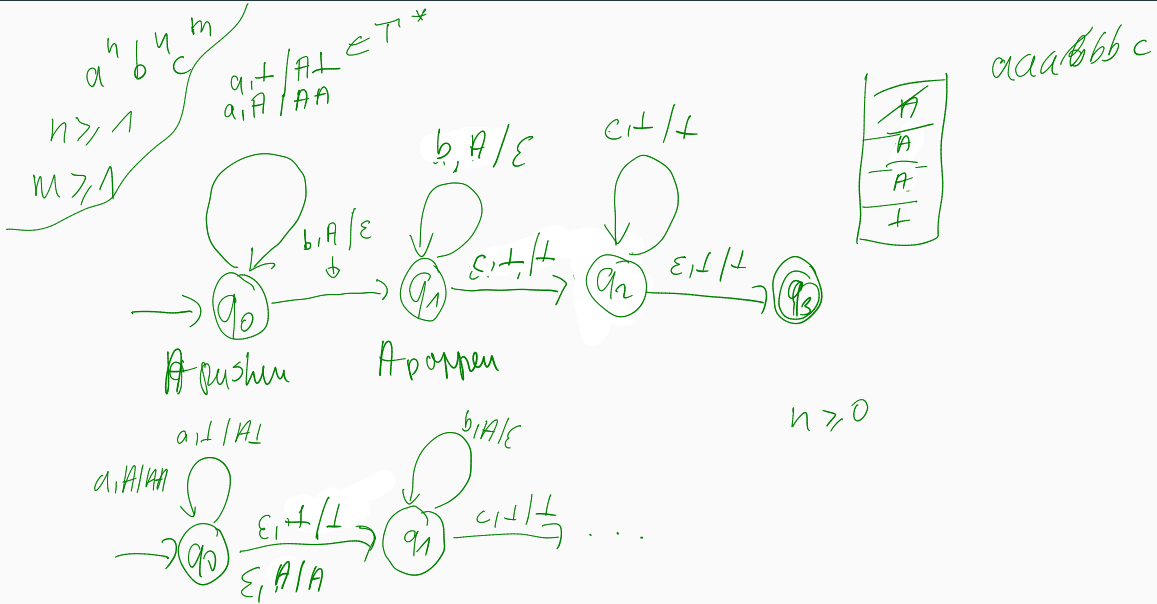 aⁿ bⁿ cᵐ
n ≥ 1
m ≥ 1
a,⊥/A⊥ ∈ Γ*
a,A/AA
aaabbbc
A
A
A
⊥
b,A/ε
b,A/ε
c,⊥/⊥
c,⊥/⊥
ε,⊥/⊥
q₀
q₁
q₂
q₃
A pushen
A poppen
n ≥ 0
a,⊥/A⊥
a,A/AA
b,A/ε
ε,⊥/⊥
ε,A/A
c,⊥/⊥
q₀
q₁
...